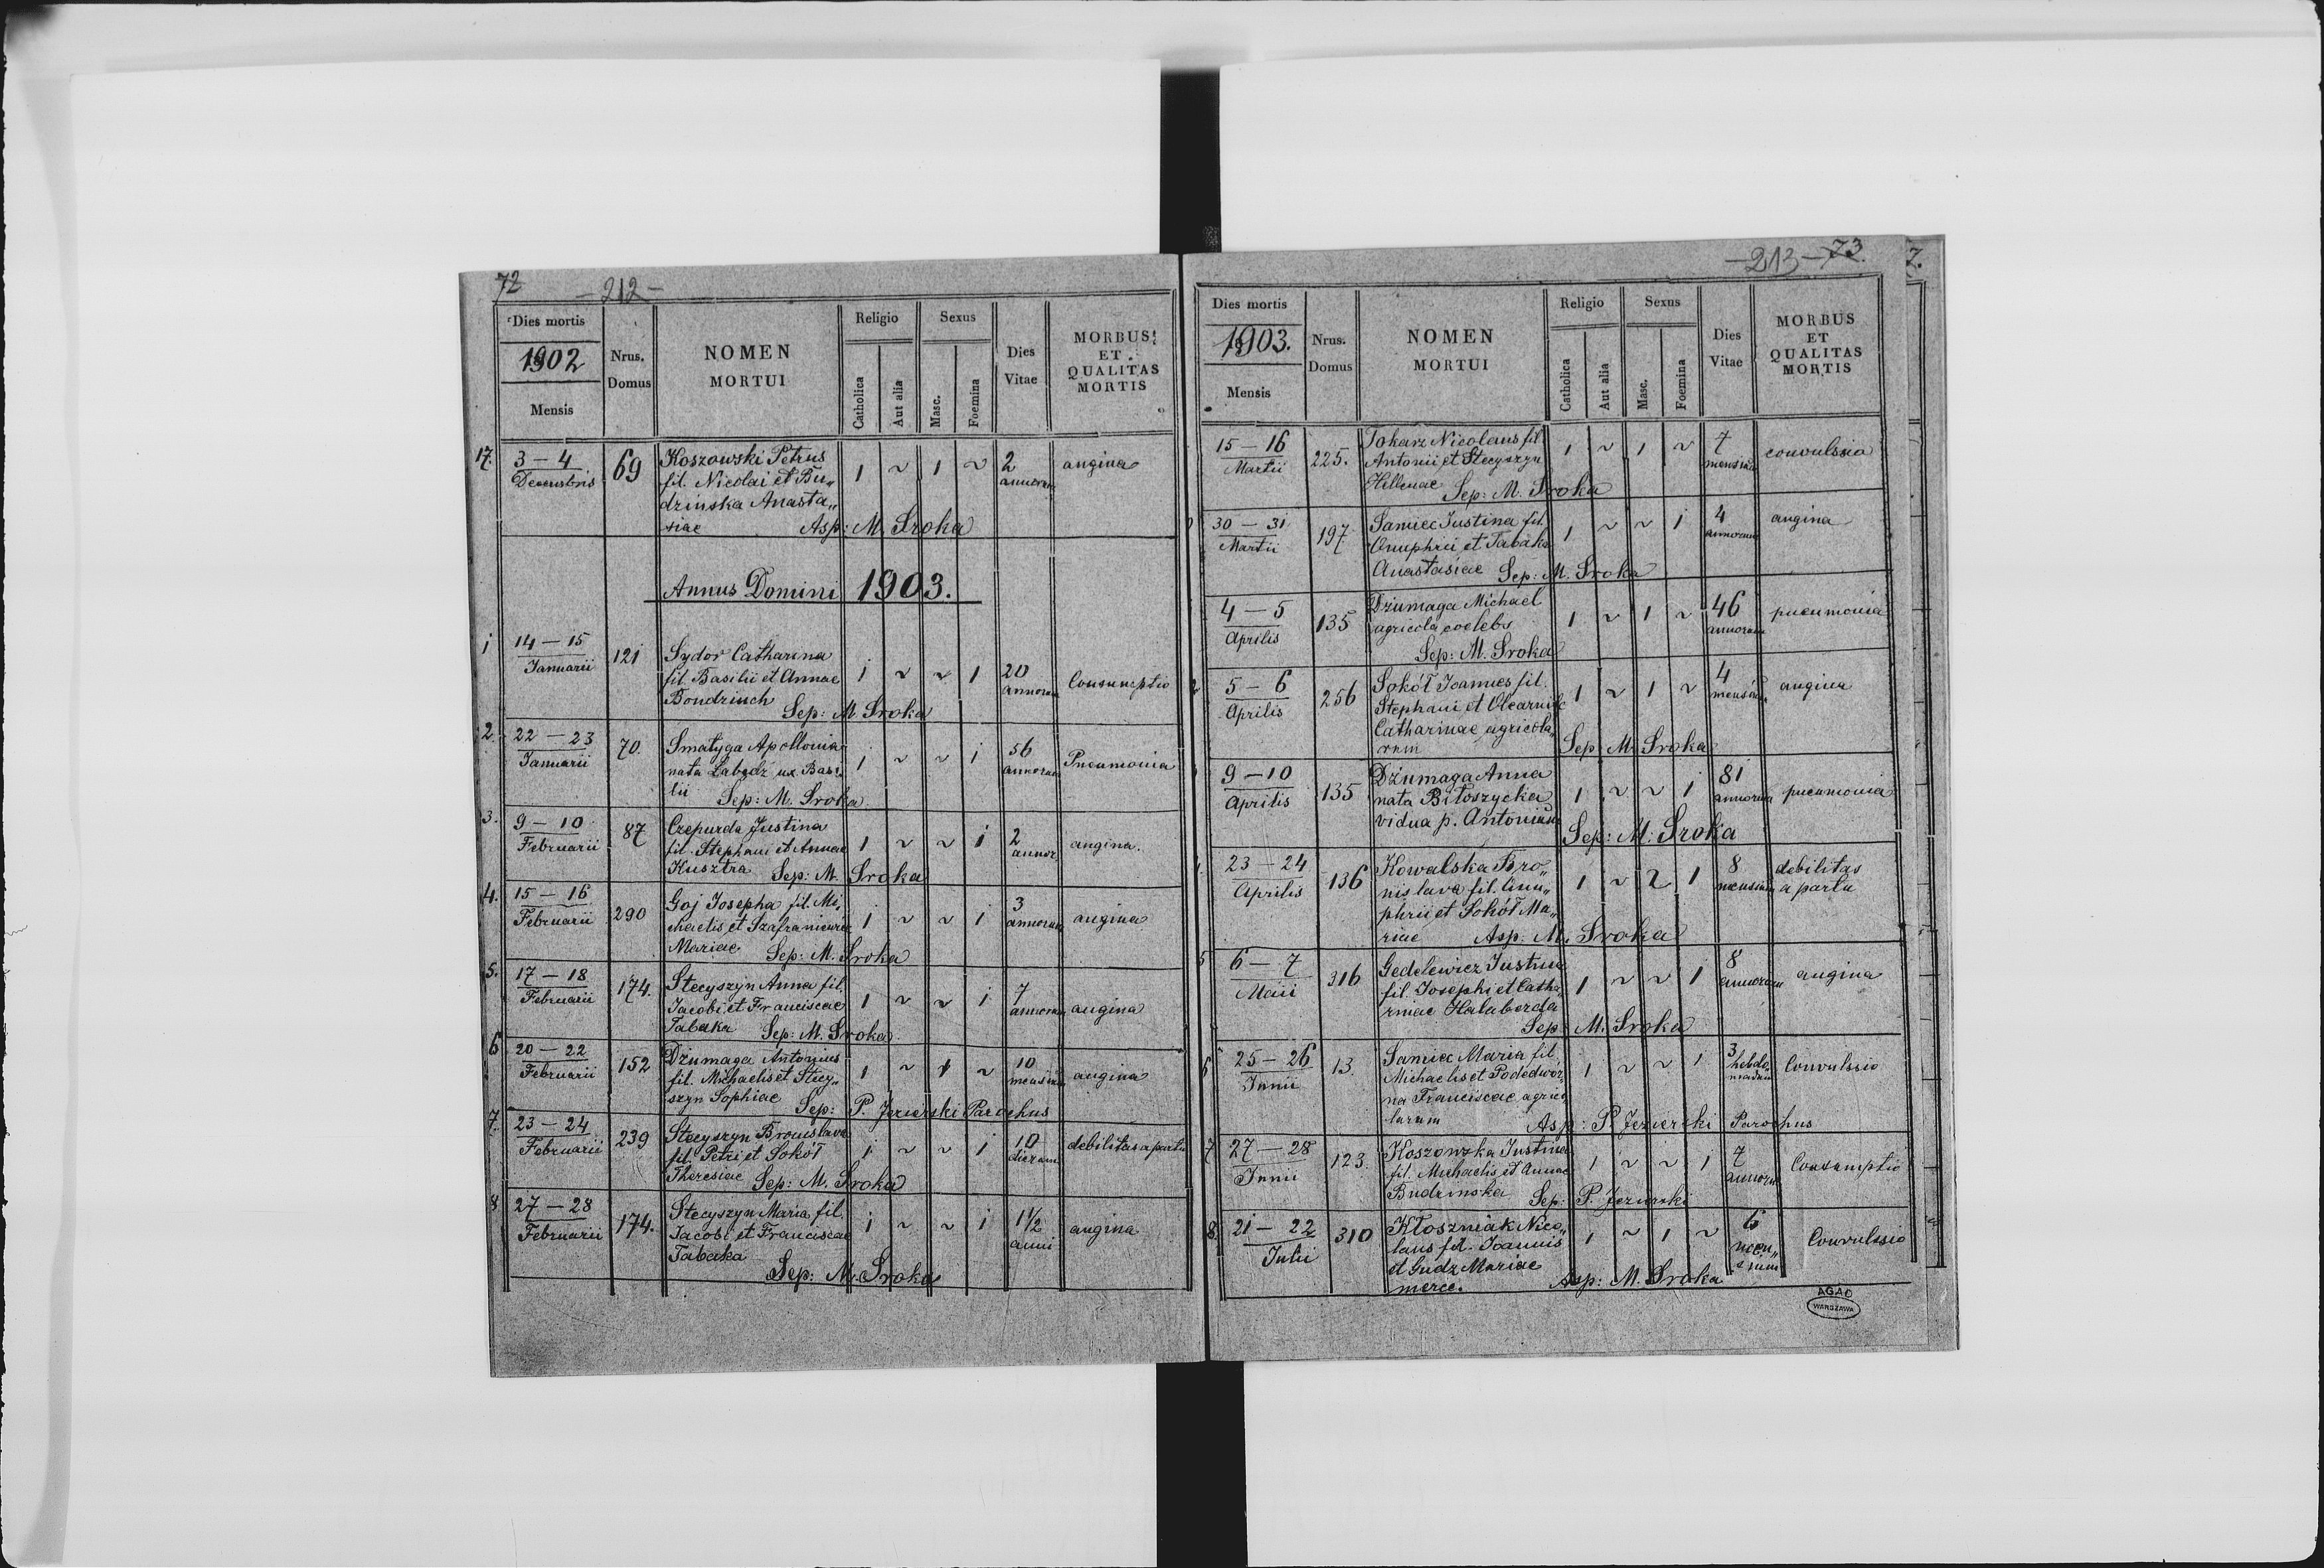 72 - 212 -
Dies mortis
1902
Mensis
Nrus.
Domus
NOMEN
MORTUI
Religio
Catholica
Aut alia
Sexus
Masc.
Foemina
Dies
Vitae
MORBUS
ET
QUALITAS
MORTIS
17. 3 – 4 69 Koszowski Petrus 1 ~ 1 ~ 2 angina
Decembris fil. Nicolai et Bu„ annorum
dzinska Anasta„
siae Asp: M. Sroka
Annus Domini 1903.
1 14 – 15 121 Sydor Catharina 1 ~ ~ 1 20 Consumptio
Januarii fil. Basilii et Annae annorum
Bondziuch Sep: M. Sroka
2. 22 – 23 70. Smatyga Apollonia 1 ~ ~ 1 56 Pneumonia
Januarii nata Łabędź ux. Basi annorum
lii Sep: M. Sroka
3. 9 – 10 87 Czepurda Justina 1 ~ ~ 1 2 angina.
Februarii fil. Stephani et Annae annor
Kusztra Sep: M. Sroka
4. 15 – 16 290 Goj Josepha fil. Mi 1 ~ ~ 1 3 angina
Februarii chaelis et annorum
Mariae Sep: M. Sroka
5. 17 – 18 174. Stecyszyn Anna fil. 1 ~ ~ 1 7 angina
Februarii Jacobi et Franciscae annorum
Tabaka Sep: M. Sroka
6 20 – 22 152 Dżumaga Antonius 1 ~ 1 ~ 10 angina
Februarii fil. Michaelis et Stecy„ mensium
szyn Sophiae Sep: P. Jezierski Parochus
7. 23 – 24 239 Stecyszyn Bronislava 1 ~ ~ 1 10 debilitas a partu
Februarii fil. Petri et Sokół dierum
Theresiae Sep: M. Sroka
8 27 – 28 174. Stecyszyn Maria fil. 1 ~ ~ 1 1½ angina
Februarii Jacobi et Franciscae anni
Tabaka
Sep: M. Sroka
- 213 - 73.
Dies mortis
1903.
Mensis
Nrus.
Domus
NOMEN
MORTUI
Religio
Catholica
Aut alia
Sexus
Masc.
Foemina
Dies
Vitae
MORBUS
ET
QUALITAS
MORTIS
15 – 16 225. Tokarz Nicolaus fil. 1 ~ 1 ~ 7 convulssio
Martii Antonii et Stecyszyn mensium
Hellenae Sep: M. Sroka
30 – 31 197 Samiec Justina fil. 1 ~ ~ 1 4 angina
Martii Onuphrii et Tabaka annorum
Anastasiae Sep: M. Sroka
4 – 5 135 Dżumaga Michael 1 ~ 1 ~ 46 pneumonia
Aprilis agricola coelebs annorum
Sep: M. Sroka
5 – 6 256 Sokół Joannes fil. 1 ~ 1 ~ 4 angina
Aprilis Stephani et mensium
Catharinae agricola„
rum Sep: M. Sroka
9 – 10 135 Dżumaga Anna 1 ~ ~ 1 81 pneumonia
Aprilis nata Biłoszycka annorum
vidua p. Antonium
Sep: M. Sroka
23 – 24 136 Kowalska Bro„ 1 ~ ~ 1 8 debilitas
Aprilis nislava fil. Onu„ mensium a partu
phrii et Sokół Ma„
riae Asp: M. Sroka
5 6 – 7 316 Gedelewicz Justina 1 ~ ~ 1 8 angina
Maii fil. Josephi et Catha„ annorum
rinae Halaborda
Sep: M. Sroka
6 25 – 26 13. Samiec Maria fil. 1 ~ ~ 1 3 Convulssio
Junii Michaelis et Podedwor„ hebdo„
na Franciscae agrico madum
larum Asp: P. Jezierski Parochus
7 27 – 28 123. Koszowska Justina 1 ~ ~ 1 7 Consumptio
Junii fil. Michaelis et Annae annorum
Budzinska Sep: P. Jezierski
8. 21 – 22 310 Kłoszniak Nico„ 1 ~ 1 ~ 6 Convulssio
Julii laus fil. Joannis men„
et Gudz Mariae sium
merce. Asp: M. Sroka
AGAD
WARSZAWA